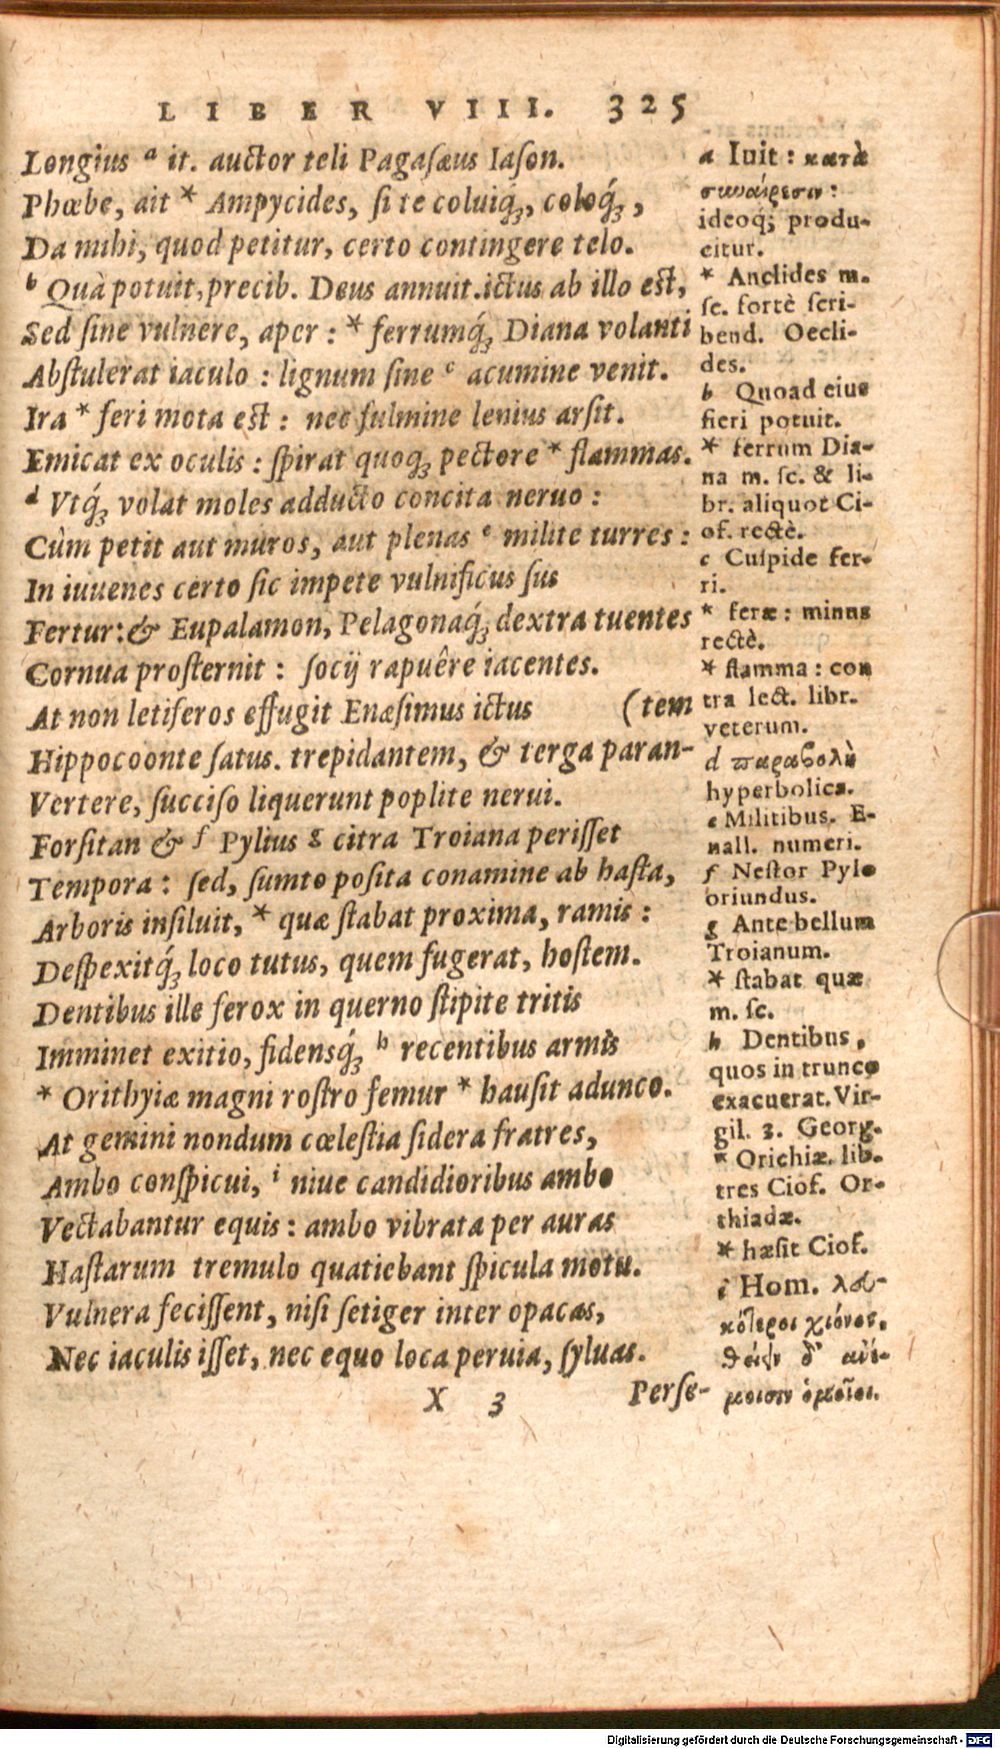 LIBER VIII. 325
Longius ᵃ it. auctor teli Pagasæus Iason.
Phœbe, ait * Ampycides, si te coluiq́;, coloq́;,
Da mihi, quod petitur, certo contingere telo.
ᵇ Quà potuit, precib. Deus annuit. ictus ab illo est,
Sed sine vulnere, aper : * ferrumq́; Diana volanti
Abstulerat iaculo : lignum sine ᶜ acumine venit.
Ira * feri mota est : nec fulmine lenius arsit.
Emicat ex oculis : spirat quoq; pectore * flammas.
ᵈ Vtq́; volat moles adducto concita neruo :
Cùm petit aut muros, aut plenas ᵉ milite turres :
In iuuenes certo sic impete vulnificus sus
Fertur : & Eupalamon, Pelagonaq́; dextra tuentes
Cornua prosternit : socij rapuêre iacentes.
At non letiferos effugit Enæsimus ictus (tem
Hippocoonte satus. trepidantem, & terga paran-
Vertere, succiso liquerunt poplite nerui.
Forsitan & f Pylius g citra Troiana perisset
Tempora : sed, sumto posita conamine ab hasta,
Arboris insiluit, * quæ stabat proxima, ramis :
Despexitq́; loco tutus, quem fugerat, hostem.
Dentibus ille ferox in querno stipite tritis
Imminet exitio, fidensq́; ʰ recentibus armis
* Orithyiæ magni rostro femur * hausit adunco.
At gemini nondum cœlestia sidera fratres,
Ambo conspicui, ⁱ niue candidioribus ambo
Vectabantur equis : ambo vibrata per auras
Hastarum tremulo quatiebant spicula motu.
Vulnera fecissent, nisi setiger inter opacas,
Nec iaculis isset, nec equo loca peruia, syluas.
X 3 Perse-
a Iuit : κατὰ
συναίρεσιν :
ideoq; produ-
citur.
* Anclides m.
sc. fortè scri-
bend. Oecli-
des.
b Quoad eius
fieri potuit.
* ferrum Dia-
na m. sc. & li-
br. aliquot Ci-
of. rectè.
c Cuspide fer-
ri.
* feræ : minus
rectè.
* flamma : con
tra lect. libr.
veterum.
d παραβολὴ
hyperbolica.
e Militibus. E-
nall. numeri.
f Nestor Pylo
oriundus.
g Ante bellum
Troianum.
* stabat quæ
m. sc.
h Dentibus,
quos in trunco
exacuerat. Vir-
gil. 3. Georg.
* Orichiæ. lib.
tres Ciof. Or-
thiadæ.
* hæsit Ciof.
i Hom. λευ-
κότεροι χιόνος,
θείειν δ' ἀνέ-
μοισιν ὁμοῖοι.
Digitalisierung gefördert durch die Deutsche Forschungsgemeinschaft - DFG